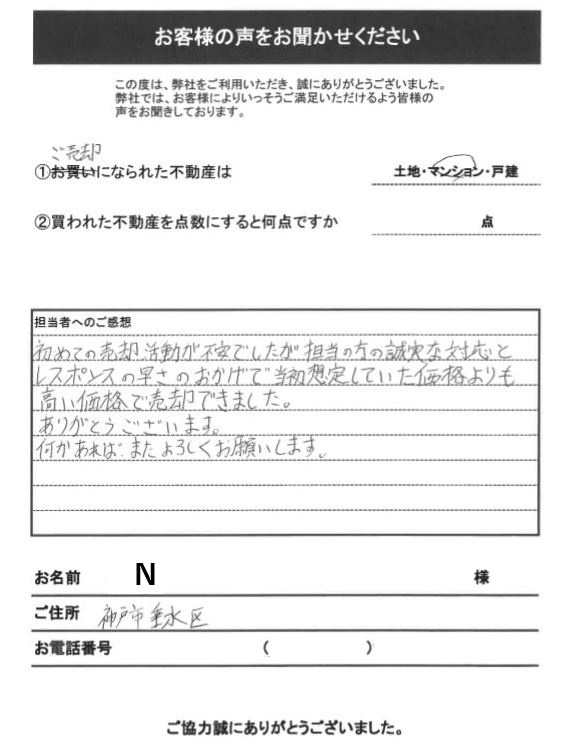 お客様の声をお聞かせください
この度は、弊社をご利用いただき、誠にありがとうございました。
弊社では、お客様によりいっそうご満足いただけるよう皆様の
声をお聞きしております。
ご売却
①お買いになられた不動産は 土地・マンション・戸建
②買われた不動産を点数にすると何点ですか 点
担当者へのご感想
初めての売却活動が不安でしたが担当の方の誠実な対応と
レスポンスの早さのおかげで当初想定していた価格よりも
高い価格で売却できました。
ありがとうございます。
何かあれば、またよろしくお願いします。
お名前 N 様
ご住所 神戸市垂水区
お電話番号 ( )
ご協力誠にありがとうございました。